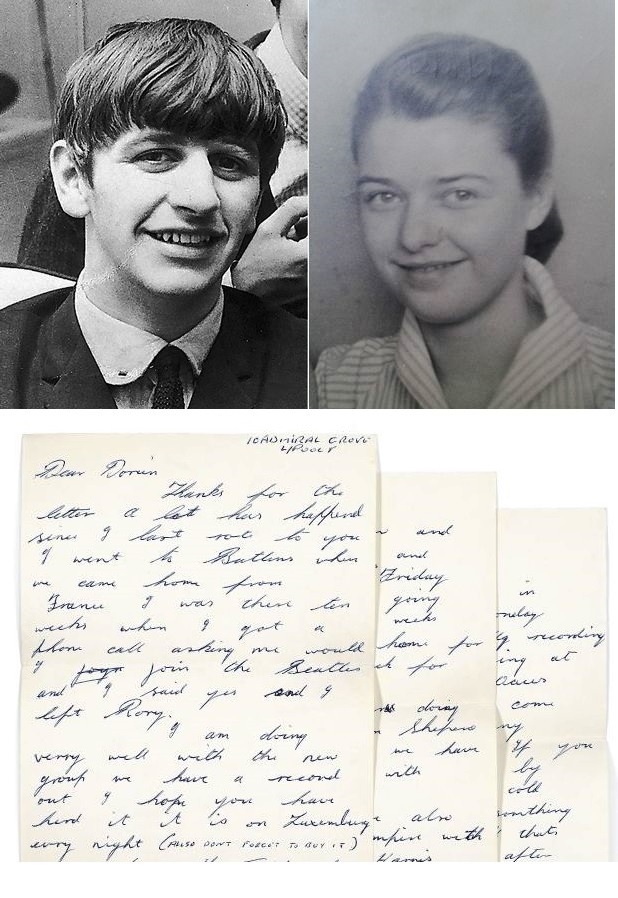 10 ADMIRAL GROVE
L/POOL 8
Dear Doreen
Thanks for the
letter a lot has happend
since I last rot to you
I went to Butlins when
we came home from
France I was there ten
weeks when I got a
phone call asking me would
I join the Beatles
and I said yes and I
left Rory.
I am doing
verry well with the new
group we have a record
out I hope you have
herd it it is on Luxemburg
evry night (ALSO DONT FORGET TO BUY IT)
and
and
Friday
going
weeks
home for
for
doing
Shepero
we have
with
also
with
Harris
in
recording
at
come
If you
by
cold
something
thats
after